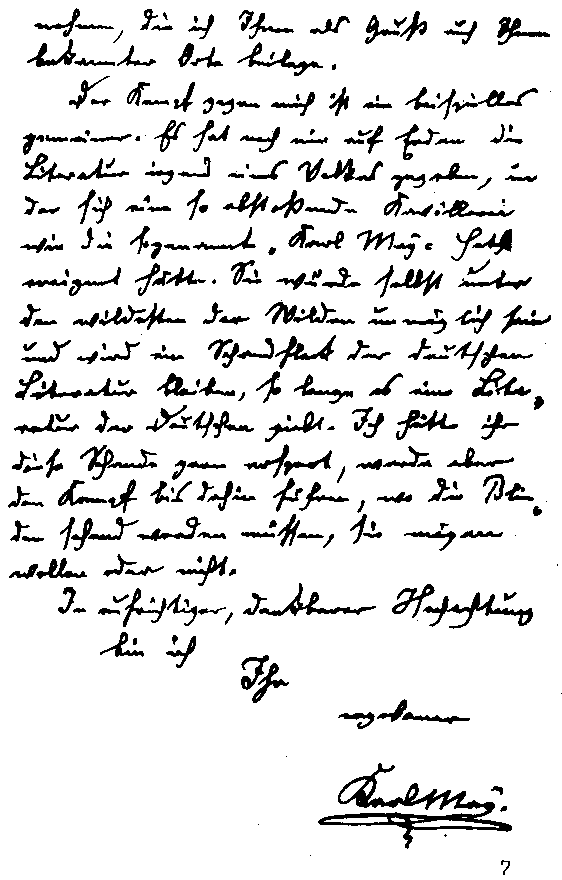 nehmen, die ich Ihnen als Gruß aus Ihnen
bekannter Orte beilege.
Der Kampf gegen mich ist ein beispiellos
gemeiner. Es hat noch nie auf Erden die
Literatur irgend eines Volkes gegeben, in
der sich eine so abstoßende Kavillerei
wie die sogenannte „Karl May=Hatz"
ereignet hätte. Sie würde selbst unter
den wildesten der Wilden unmöglich sein
und wird ein Schandfleck der deutschen
Literatur bleiben, so lange es eine Lite-
ratur der Deutschen giebt. Ich hätte ihr
diese Schande gern erspart, werde aber
den Kampf bis dahin führen, wo die Blin-
den sehend werden müssen, sie mögen
wollen oder nicht.
In aufrichtiger, dankbarer Hochachtung
bin ich
Ihr
ergebener
Karl May.
7